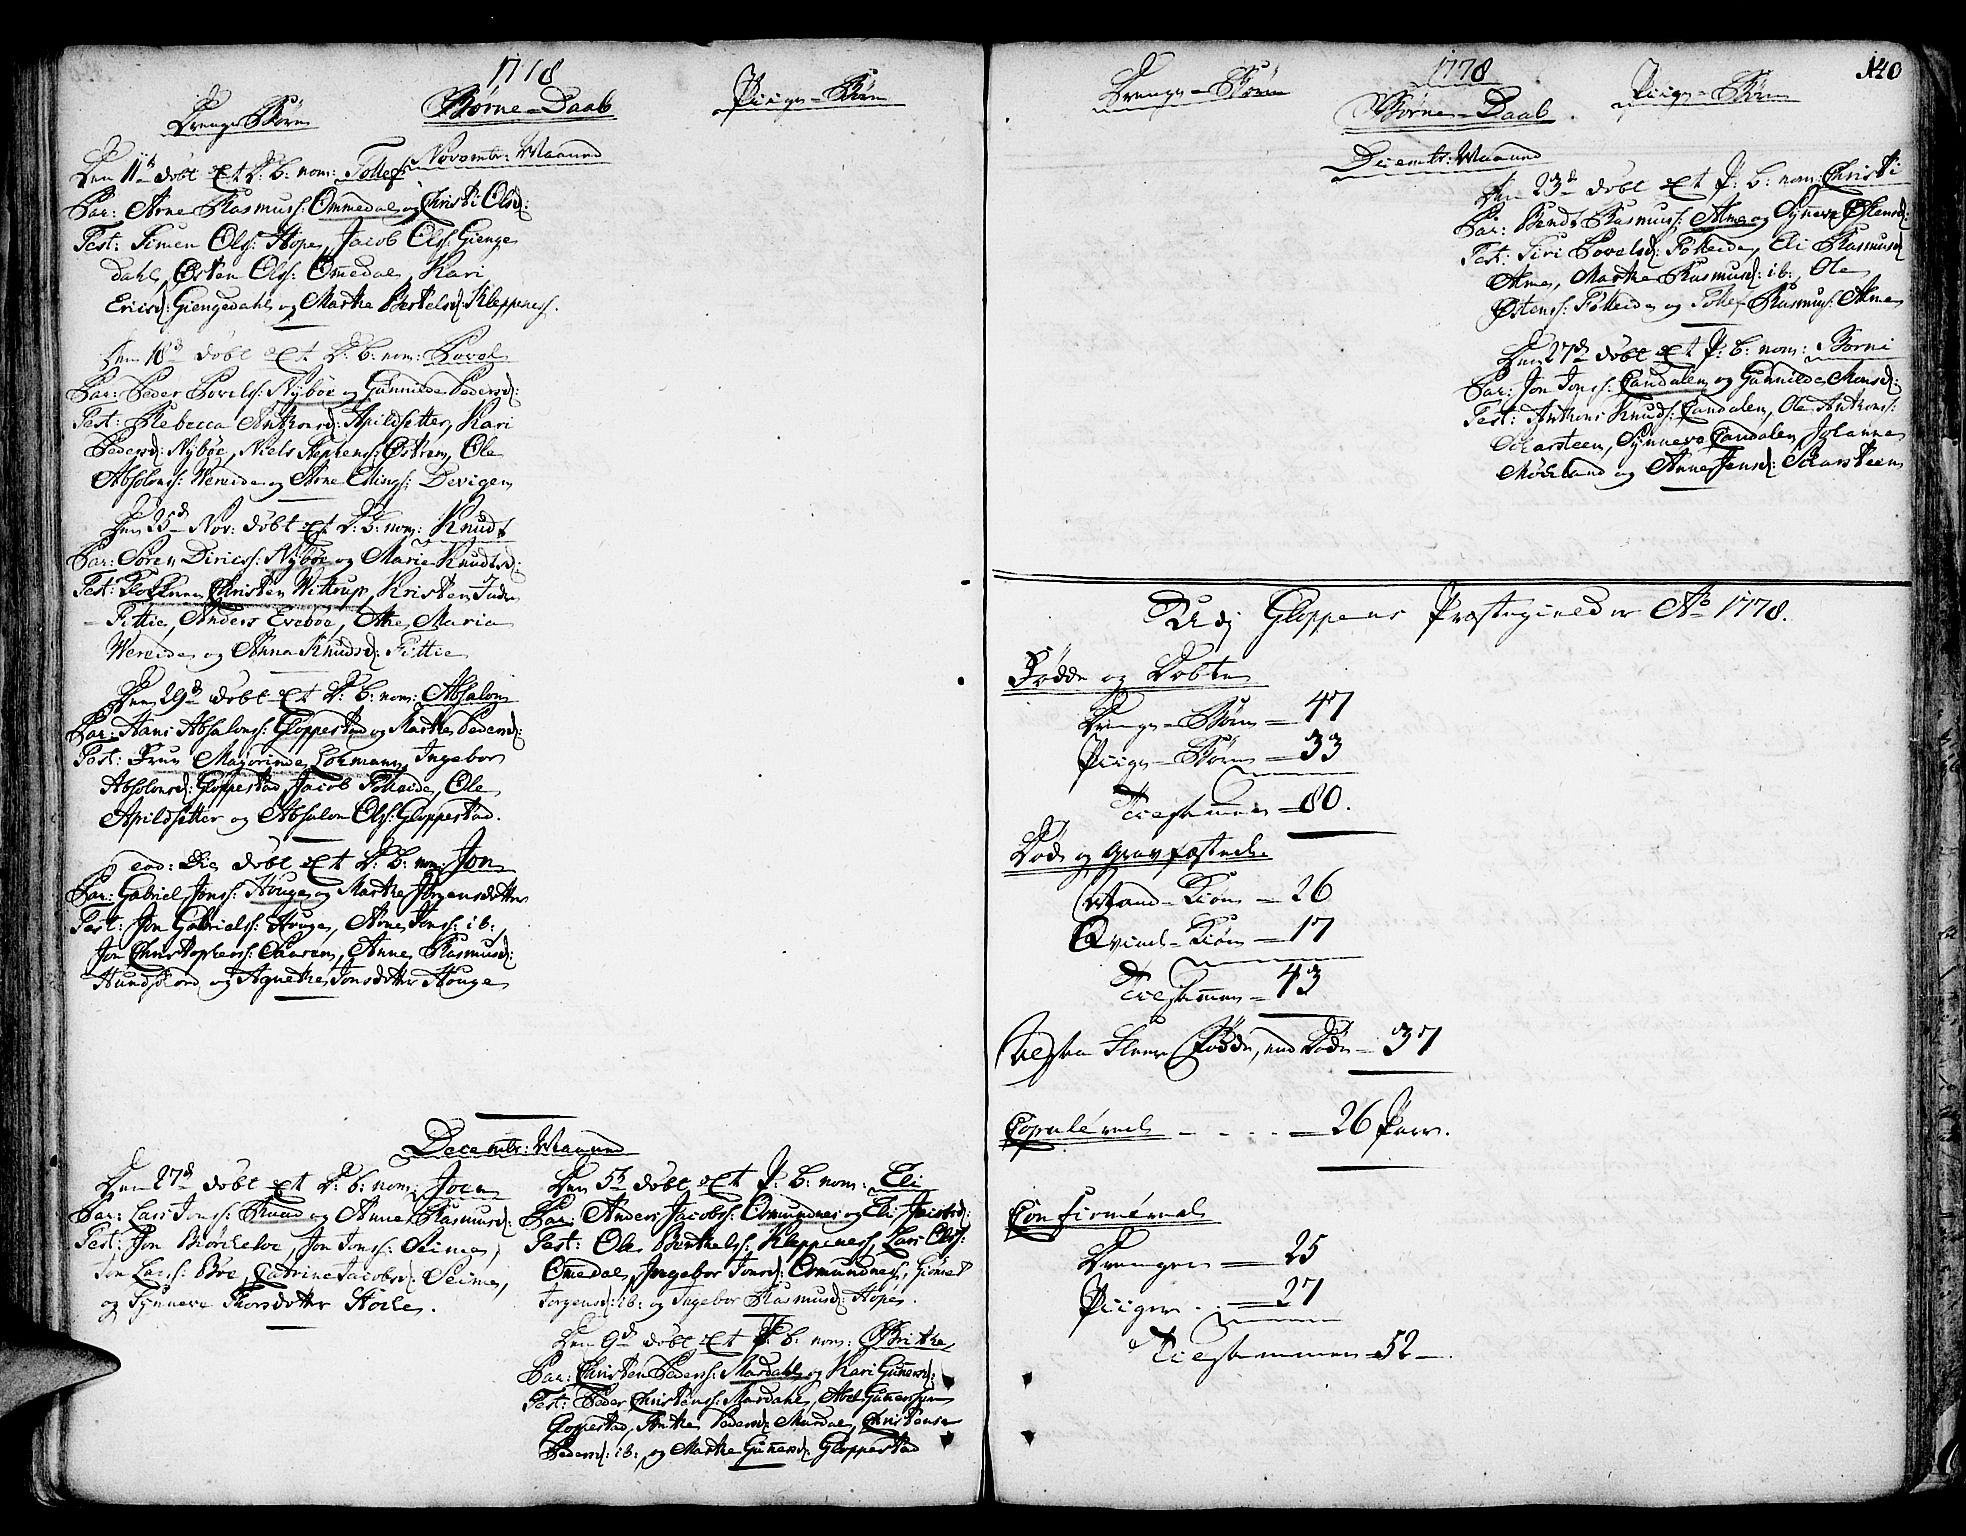 1778
Drenge Børn Børne-Daab Piige-Børn
Novembr: Maaned
Den 11te døbt et D: b: nom: Tollef
Par: Arne Rasmuss: Ommedal og Christi Olsd:
Test: Simen Ols: Hope, Jacob Ols: Gienge
dahl, Østen Ols: Omedal, Kari
Ericsd: Giengedahl og Marthe Bertelsd: Kleppenes.
Den 18d døbt et D: b: nom: Povel
Par: Peder Povels: Nybøe og Gunnilde Pedersd:
Test: Rebecca Anthonsd: Apildsetter, Kari
Pedersd: Nybøe, Niels Stephens: Østrem, Ole
Absolons: Wereide og Arne Ellings: Devigen
Den 25d Nov: døbt et D: b: nom: Knudt
Par: Søren Dirics: Nybøe og Marie Knudtsd:
Test: Christen Wittrup, Kristen
Fittie, Anders Evebøe, Maria
Wereide og Anna Knudsd: Fittie
Den 29d døbt et D: b: nom: Absalon
Par: Hans Absalons: Gloppestad og Marthe Pedersd:
Test: Frue Majorinde Lohmann, Ingebor
Absolonsd: Gloppestad, Jacob Totteide, Ole
Apildsetter og Absalon Ols: Gloppestad.
eod: Die døbt et D: b: nom: Jon
Par: Gabriel Jons: Houge og Marthe Jørgensdotter
Test: Jon Gabriels: Houge, Arne Jens: ib:
Jon Christophers: Anne Rasmusd:
Hundskord og Agnethe Jonsdotter Houge
Decembr: Maaned
Den 27d døbt et D: b: nom: Joen
Par: Lars Jons: og Anne Rasmusd:
Test: Jon Jon Jons: Seime,
Jon Larss: Bøe, Catrine Jacobsd: Seime,
og Synneve Thorsdotter
Den 5te døbt et P: b: nom: Eli
Par: Anders Jacobs: Osmundnes og Eli Jacobsd:
Test: Ole Berthels: Kleppenes, Lars Ols:
Omedal, Ingebor Jonsd: Osmundnes,
Jorgensd: ib: og Ingebor Rasmusd: Hope.
Den 9d døbt et P: b: nom: Brithe
Par: Christen Peders: Mardahl og Kari Gunnersd:
Test: Peder Christens: Mardahl, Abel
Gloppestad, Anthe Pedersd: Mardal, Christense
Pedersd: ib: og Marthe Gunnersd: Gloppestad
1778 140
Drenge-Børn Børne-Daab Piige-Børn
Decembr: Maaned
Den 23d døbt et P: b: nom: Christi
Par: Bendt Rasmuss: Alme og Synneve Østensd:
Test: Siri Povelsd: Totteide, Eli Rasmusd:
Alme, Marthe Rasmusd: ib:, Ole
Østens: Totteide og Tollef Rasmuss: Alme
Den 27d døbt et P: b: nom:
Par: Jon Jons: Sandalen og Gunnilde Monsd:
Test: Anthoni Knuds: Sandalen, Ole Anthons:
Skarsteen, Synneve Sandalen, Johanne
Mökland og Anne Jensd: Skarsteen
Udj Gloppens Præstegield er Ao 1778.
Fødde og Døbte
Drenge-Børn = 47
Piige-Børn = 33
Tilsammen = 80.
Døde og Gravfæstede
Mand-Kiøn = 26
Qvind-Kiøn = 17
Tilsammen = 43
Altsaa fleere Fødde, end Døde = 37
Copulerede - - - = 26 Parr.
Confirmerede
Drenger = 25
Piiger = 27
Tilsammen = 52